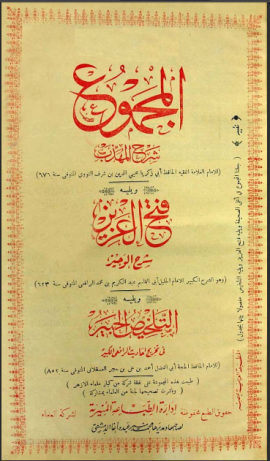 المجموع
شرح المهذب
للإمام العلامة الفقيه الحافظ أبي زكريا محيي الدين بن شرف النووي المتوفى سنة ٦٧٦
ويليه
فتح العزيز
شرح الوجيز
وهو الشرح الكبير للإمام الجليل أبي القاسم عبد الكريم بن محمد الرافعي المتوفى سنة ٦٢٣
ويليه
التلخيص الحبير
في تخريج أحاديث الرافعي الكبير
للإمام الحافظ الحجة أبي الفضل أحمد بن علي بن حجر العسقلاني المتوفى سنة ٨٥٢
طبعت هذه المجموعة على نفقة شركة من كبار علماء الأزهر
حقوق الطبع محفوظة
إدارة الطباعة المنيرية
لشركة العلماء
تنبيه